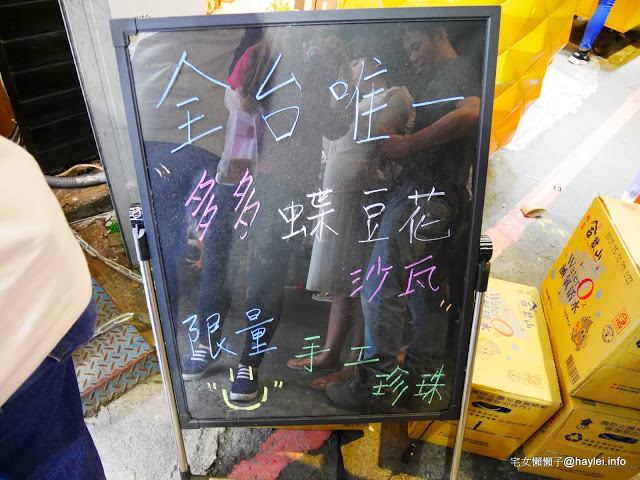 全台唯一
"多多 蝶豆花
沙瓦"
限量 手工
珍珠
WaterO
宅女懶懶子@haylei.info